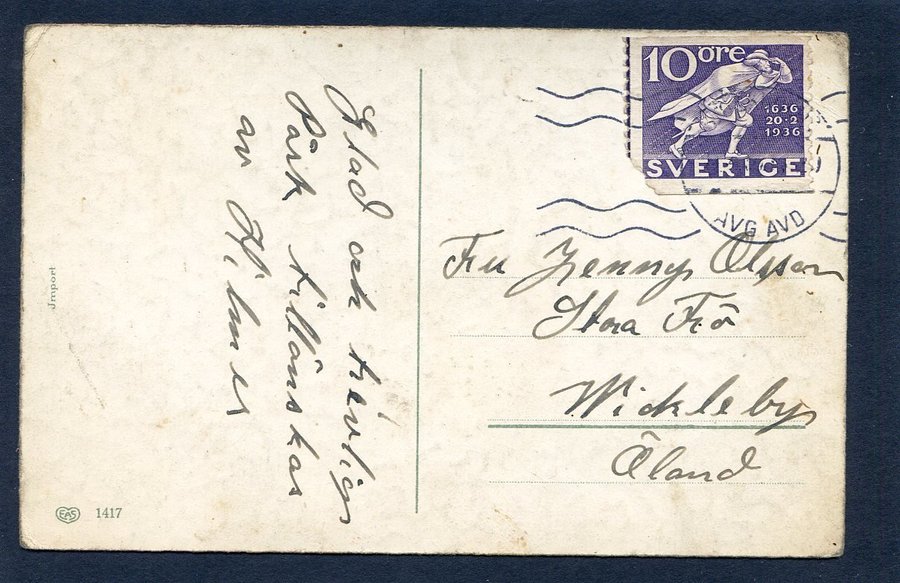 Glad och trevlig
Påsk tillönskas
av Hilmer
Jmport
EAS 1417
10 öre
1636
20-2
1936
SVERIGE
AVG AVD
Fru Jenny Olsson
Stora Frö
Wickleby
Öland